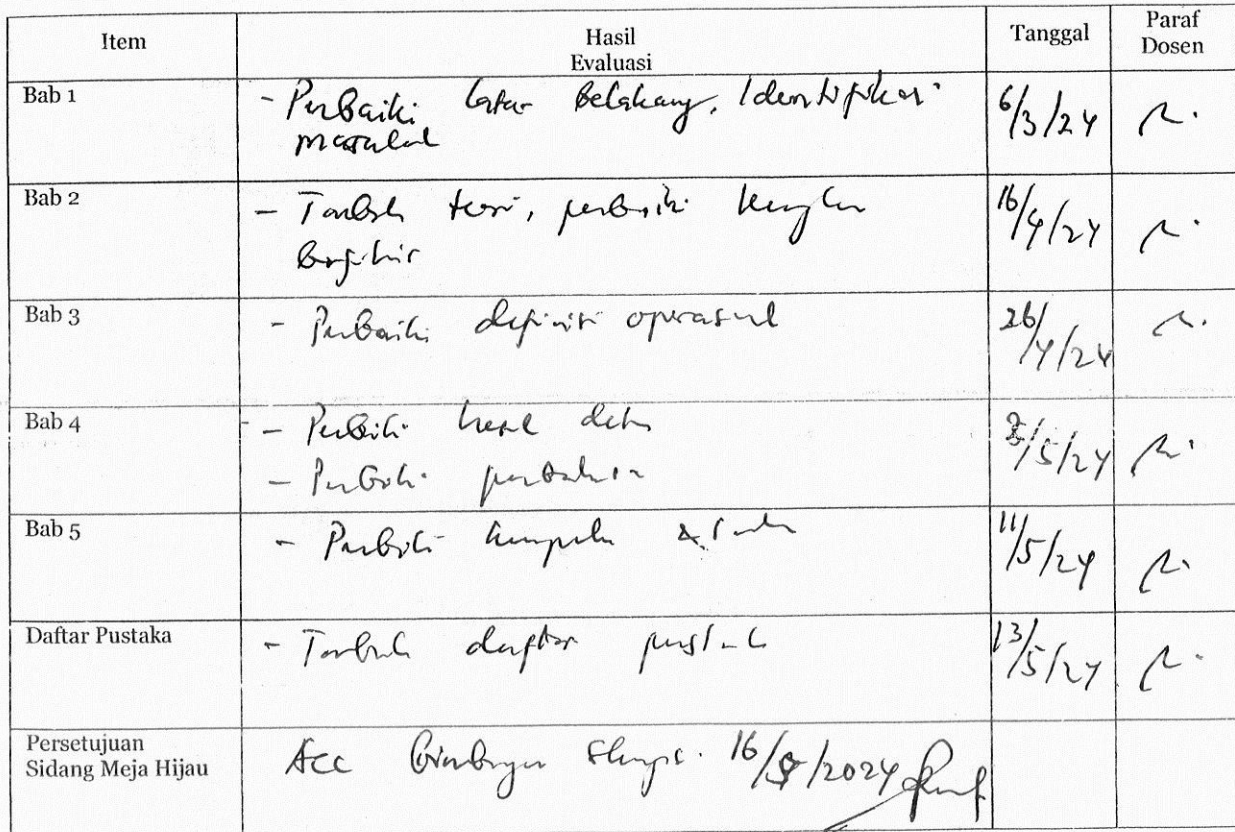 Item Hasil Evaluasi Tanggal Paraf Dosen
Bab 1 - Perbaiki latar Belakang, Identifikasi 6/3/24
masalah
Bab 2 - Tambah teori, perbaiki 16/4/24
berfikir
Bab 3 - Perbaiki definisi operasional 26/4/24
Bab 4 - Perbaiki hasil data /5/24
- Perbaiki pembahasan
Bab 5 - Perbaiki 11/5/24
Daftar Pustaka - Tambah daftar pustaka 13/5/24
Persetujuan
Sidang Meja Hijau Acc bimbingan 16/5/2024